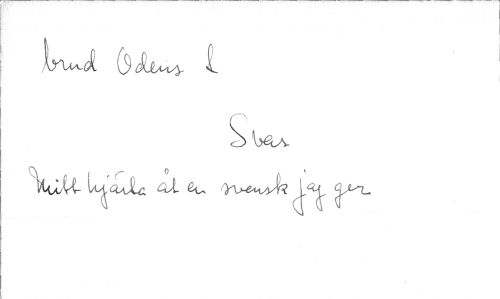 brud Odens S
Svar
Mitt hjärta åt en svensk jag ger